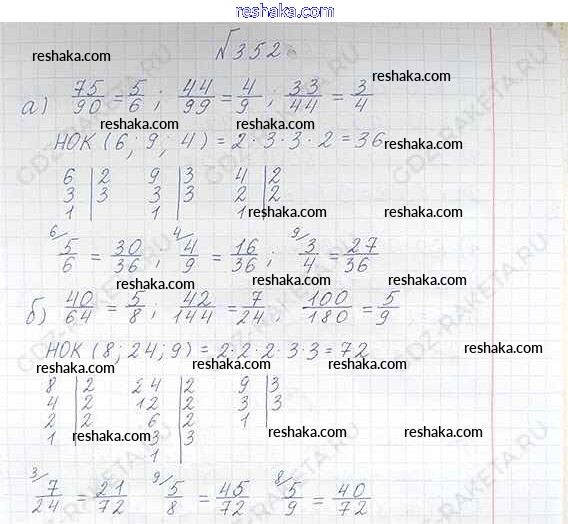 www.reshaka.com
reshaka.com
№352
reshaka.com
reshaka.com
а) 75/90 = 5/6 ; 44/99 = 4/9 ; 33/44 = 3/4
reshaka.com
НОК (6; 9; 4) = 2·3·3·2 = 36
reshaka.com
6 | 2 9 | 3 4 | 2
3 | 3 3 | 3 2 | 2
1 1 1
reshaka.com
reshaka.com
6/ 5/6 = 30/36 ; 4/ 4/9 = 16/36 ; 9/ 3/4 = 27/36
reshaka.com
reshaka.com
б) 40/64 = 5/8 ; 42/144 = 7/24 ; 100/180 = 5/9
reshaka.com
НОК (8; 24; 9) = 2·2·2·3·3 = 72
reshaka.com
8 | 2 24 | 2 9 | 3
4 | 2 12 | 2 3 | 3
2 | 2 6 | 2 1
1 3 | 3
1
reshaka.com
reshaka.com
reshaka.com
3/ 7/24 = 21/72 9/ 5/8 = 45/72 8/ 5/9 = 40/72
reshaka.com
reshaka.com
www.reshaka.com
GDZ-RAKETA.RU